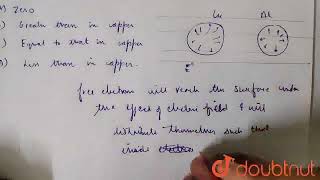 A) Zero
) Greater than in copper
) Equal to that in copper
) Less than in copper.
Cu Al
free electrons will reach the surface under
the effect of electric field & will
distribute themselves such that
inside
doubtnut